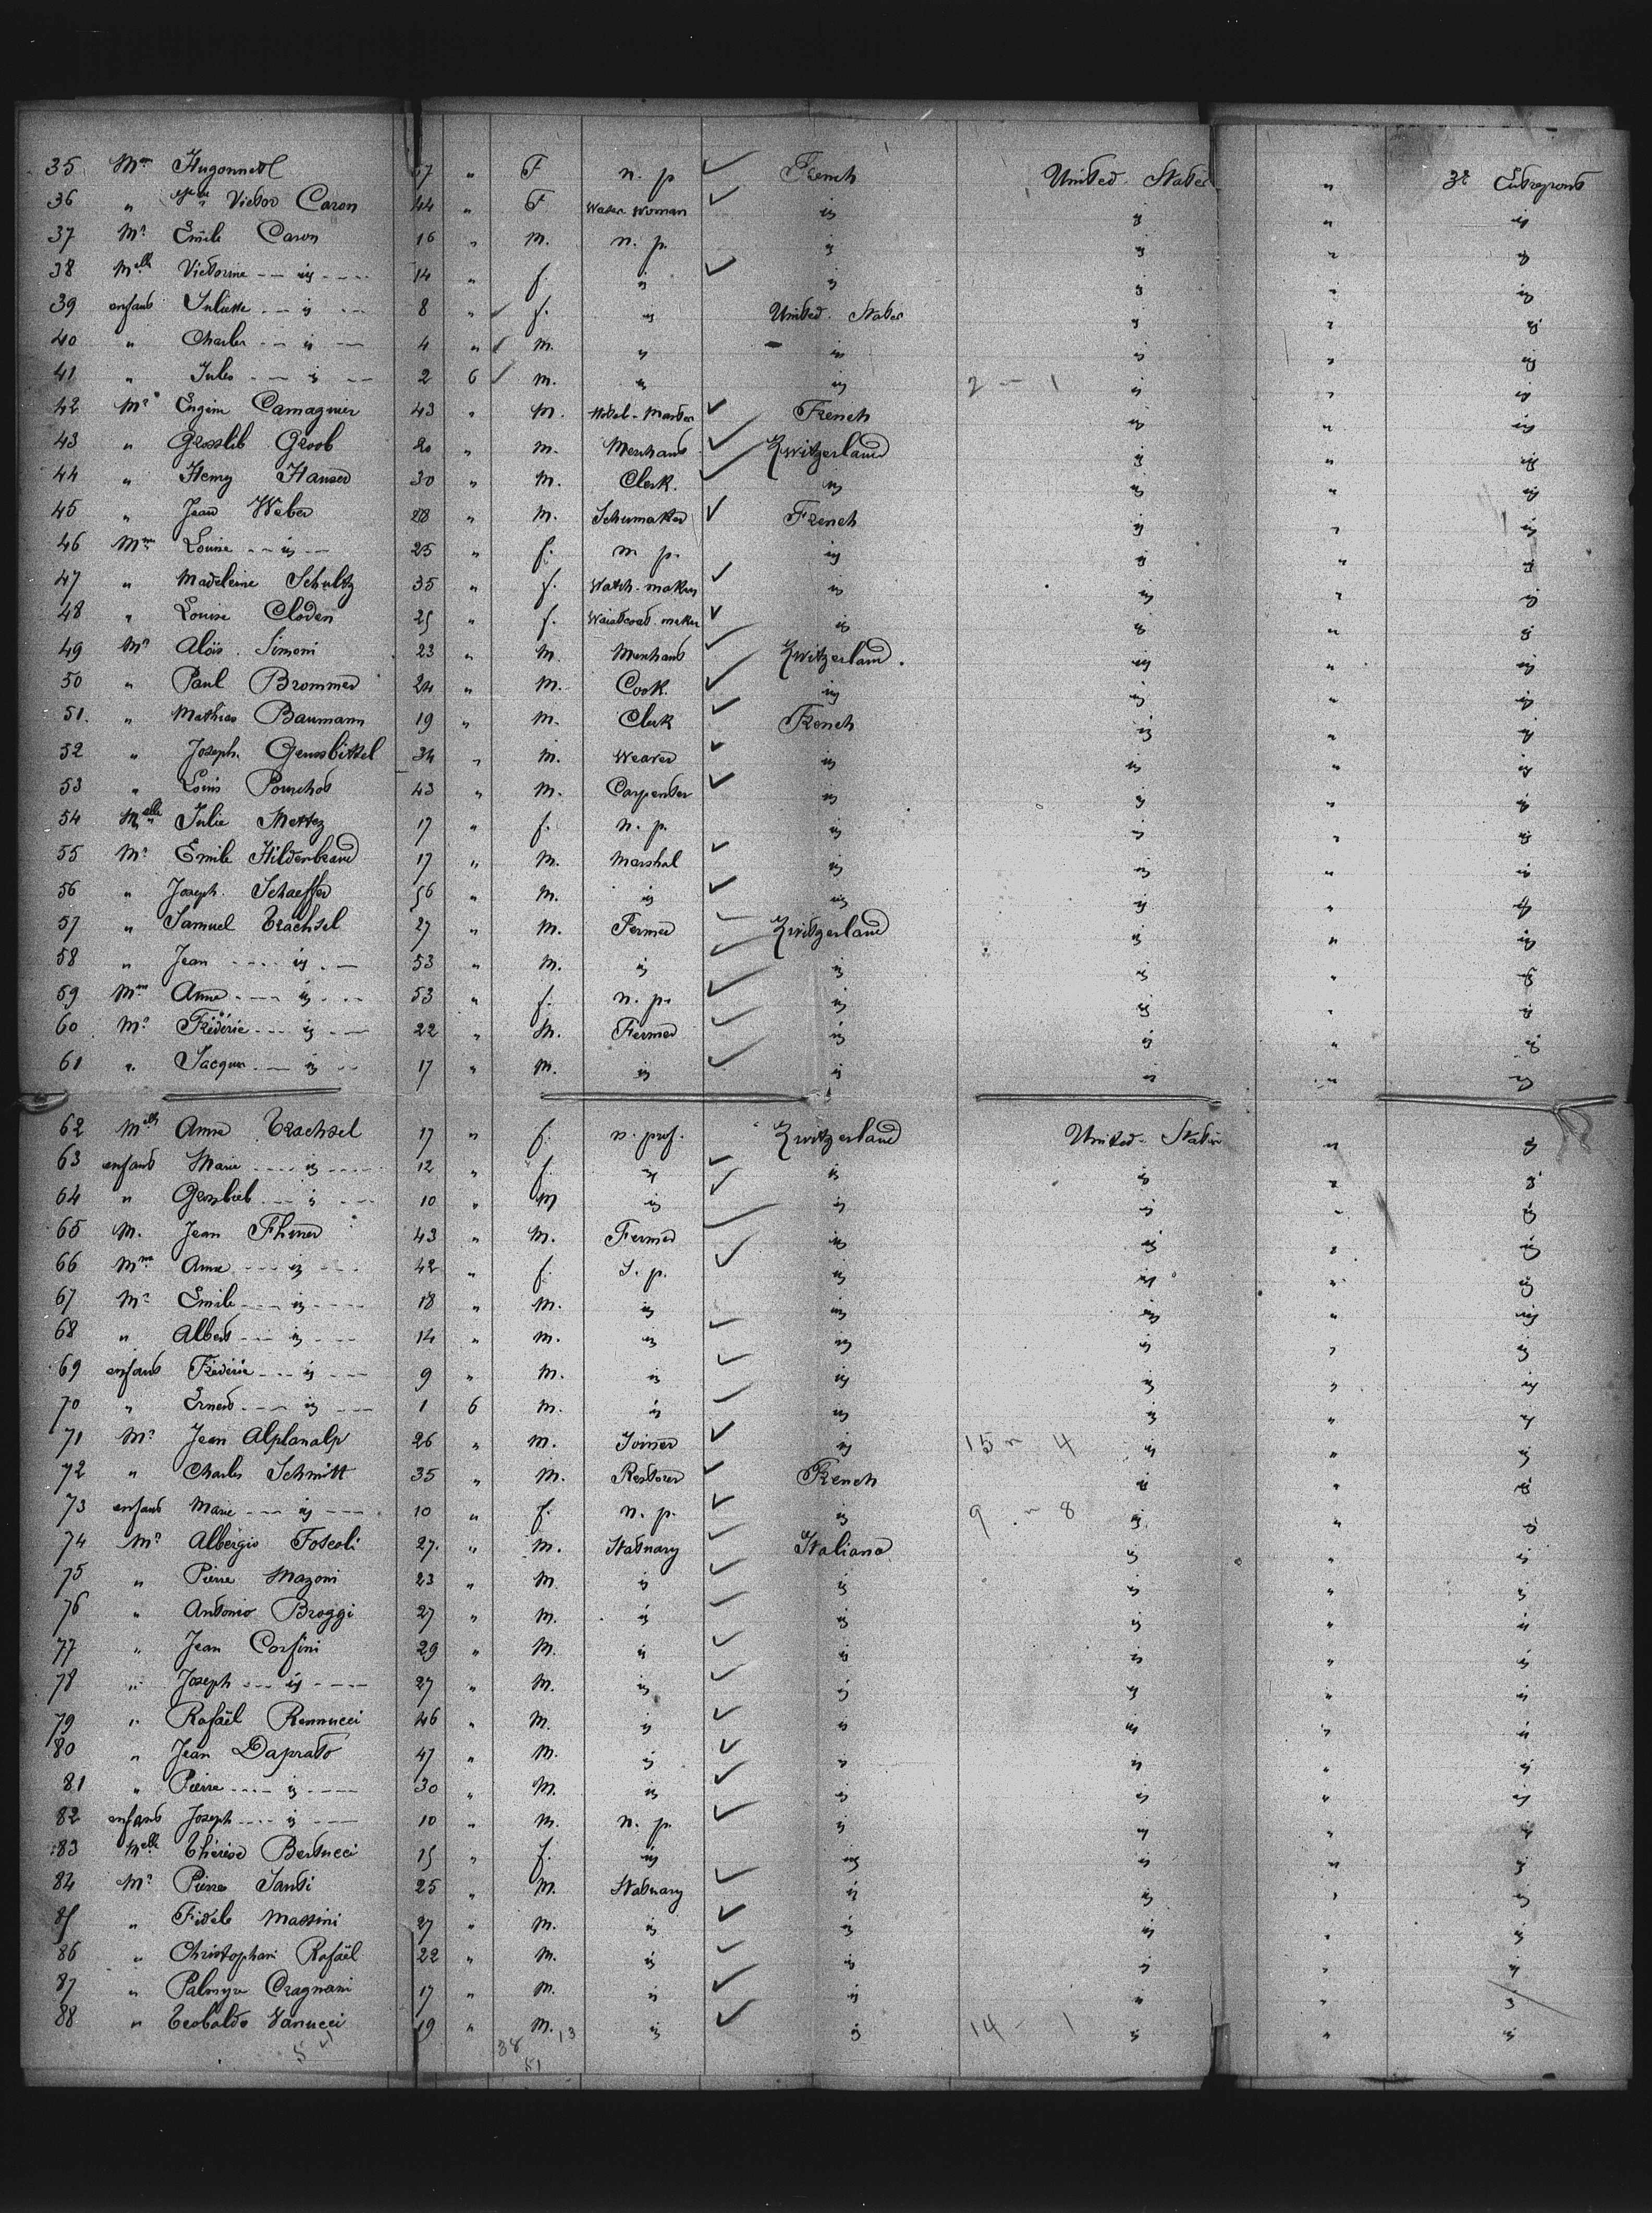 35 Mme Hugonnetl 57 " F n. p French United States " 3e Entrepont
36 " Victor Caron 44 " F Water Woman id id " id
37 Mr Emile Caron 16 " M. n. p. id id " id
38 Melle Victorine -- id ---- 14 " f. id id id " id
39 enfant Juliette -- id -- 8 " f. id United States id " id
40 " Charles -- id -- 4 " M. id id id " id
41 " Jules -- id -- 2 6 M. id id 2 - 1 id " id
42 Mr Engine Camagnier 43 " M. Hotel-Master French id " id
43 " Grosslib Groob 20 " M. Merchant Zwitzerland id " id
44 " Henry Hanser 30 " M. Clerk. id id " id
45 " Jean Weber 28 " M. Schumaker French id " id
46 Mme Louise -- id -- 25 " f. n p. id id " id
47 " Madeleine Schultz 35 " f. Watch-maker id id " id
48 " Louise Cloden 25 " f. Waistcoat-maker id id " id
49 Mr Aloïs Simoni 23 " M. Merchant Zwitzerland. id " id
50 " Paul Brommer 24 " M. Cook. id id " id
51. " Mathias Baumann 19 " M. Clerk French id " id
52 " Joseph Gensbittel 34 " M. Weaver id id " id
53 " Louis Pourchot 43 " M. Carpenter id id " id
54 Melle Julie Mettez 17 " f. n. p. id id " id
55 Mr Emile Hildenbrand 17 " M. Marshal id id " id
56 " Joseph Schaeffer 56 " M. id id id " id
57 " Samuel Trachsel 27 " M. Fermer Zwitzerland id " id
58 " Jean ---- id -- 53 " M. id id id " id
59 Mme Anna ---- id --- 53 " f. n. p. id id " id
60 Mr Frédéric --- id -- 22 " M. Fermer id id " id
61 " Jacques --- id -- 17 " M. id id id " id
62 Melle Anna Trachsel 17 " f. n. prof. Zwitzerland United States " id
63 enfant Marie ---- id ---- 12 " f. id id id " id
64 " Grosslieb --- id --- 10 " M id id id " id
65 M. Jean Fhiner 43 " M. Fermer id id " id
66 Mme Anna --- id --- 42 " f. S. p. id id " id
67 Mr Emile --- id ---- 18 " M. id id id " id
68 " Albert --- id --- 14 " M. id id id " id
69 enfant Frédéric --- id --- 9 " M. id id id " id
70 " Ernest --- id --- 1 6 M. id id id " id
71 Mr Jean Alplanalp 26 " M. Joiner id 15 - 4 id " id
72 " Charles Schmitt 35 " M. Restorer French id " id
73 enfant Marie --- id --- 10 " f. n. p. id 9 - 8 id " id
74 Mr Albergio Foscoli 27. " M. Statuary Italiano id " id
75 " Pierre Mazoni 23 " M. id id id " id
76 " Antonio Broggi 27 " M. id id id " id
77 " Jean Corfini 29 " M. id id id " id
78 " Joseph --- id ---- 27 " M. id id id " id
79 " Rafaël Rennucci 46 " M. id id id " id
80 " Jean Daprato 47 " M. id id id " id
81 " Pierre ---- id ---- 30 " M. id id id " id
82 enfant Joseph ---- id --- 10 " M. n. p. id id " id
83 Melle Thérèse Bertucci 15 " f. id id id " id
84 Mr Pierre Santi 25 " M. Statuary id id " id
85 " Fidèle Massini 27 " M. id id id " id
86 " Christophani Rafaël 22 " M. id id id " id
87 " Palmyr Cragnani 17 " M. id id id " id
88 " Teobaldo Vanucci 19 " M. id id 14 - 1 id " id
38 13
51